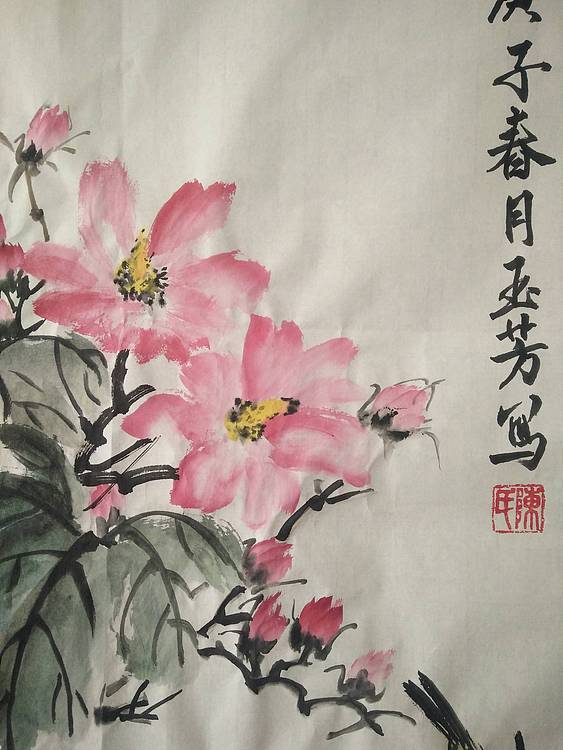 庚子春月玉芳写
陳氏